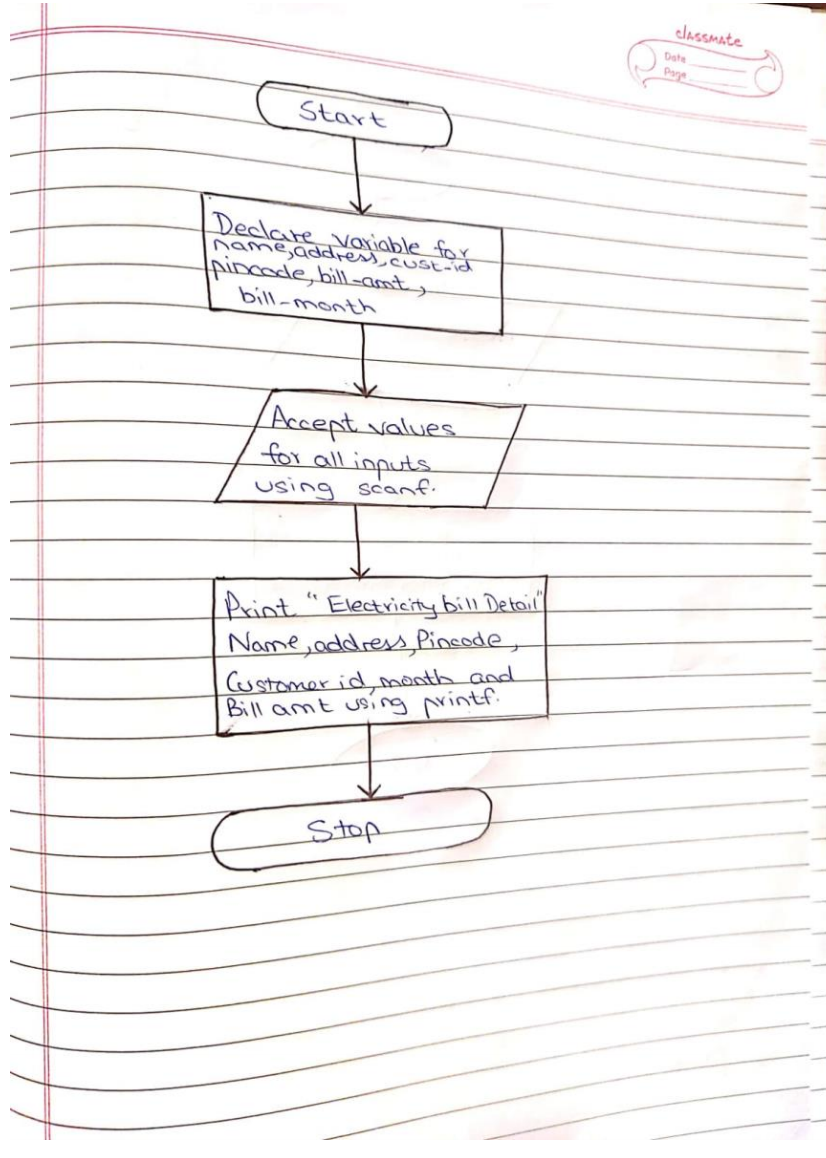 classmate
Date
Page
Start
Declare variable for
name,address,cust-id
pincode,bill-amt,
bill-month
Accept values
for all inputs
using scanf.
Print "Electricity bill Detail"
Name,address,Pincode,
Customer id,month and
Bill amt using printf.
Stop